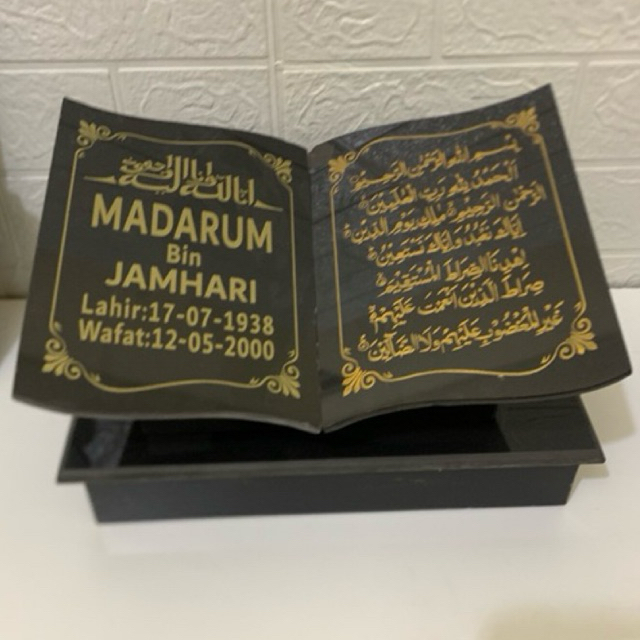 انا لله وانا اليه راجعون
MADARUM
Bin
JAMHARI
Lahir:17-07-1938
Wafat:12-05-2000
بسم الله الرحمن الرحيم
الحمد لله رب العلمين
الرحمن الرحيم ملك يوم الدين
إياك نعبد وإياك نستعين
إهدنا الصراط المستقيم
صراط الذين أنعمت عليهم
غير المغضوب عليهم ولا الضالين